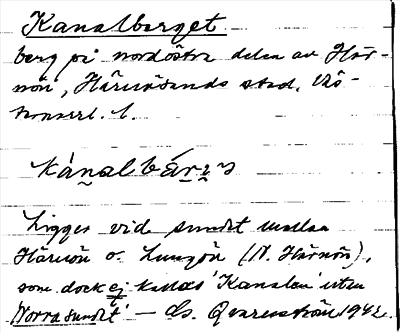 Kanalberget
berg på nordöstra delen av Här-
nön, Härnösands stad, Väs-
ternorrl. l.
Ligger vid sundet mellan
Härnön o. Lungön (N. Härnön),
som dock ej kallas 'Kanalen' utan
'Norra sundet' — Gs. Qvarnström 1942.